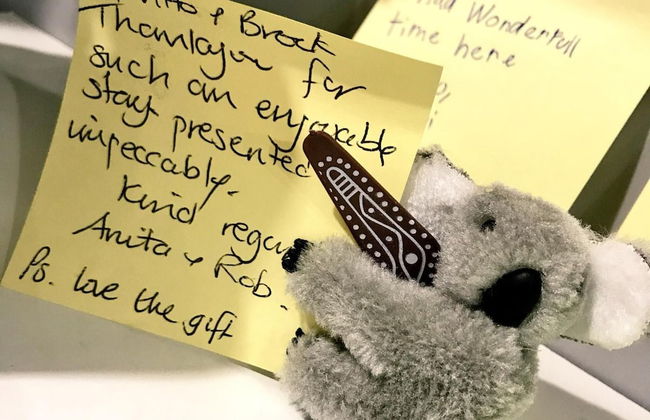 & Brock
Thankyou for
such an enjoyable
stay presented
impeccably.
Kind rega
Anita & Rob.
Ps. love the gift
had Wonderfull
time here